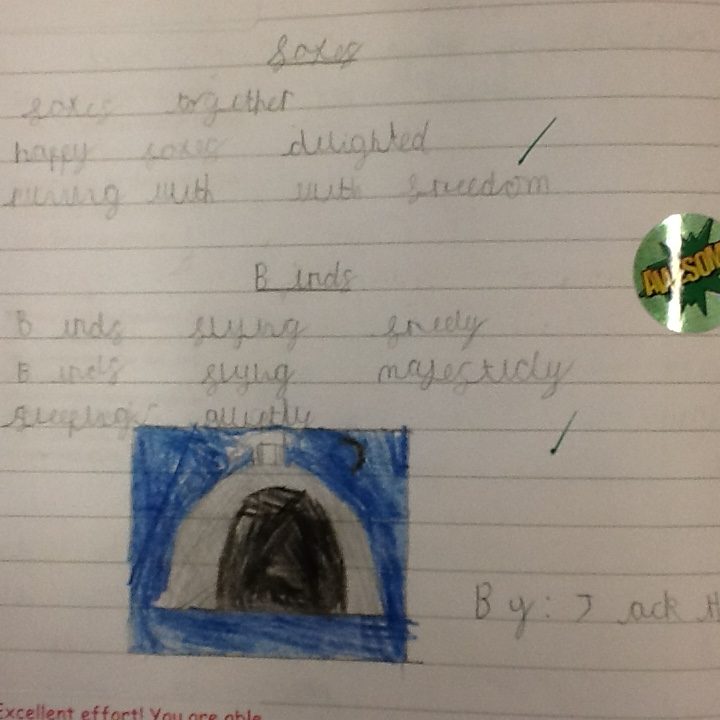 foxes
foxes together
happy foxes delighted
running with with freedom
Birds
Birds flying freely
Birds flying majesticly
sleeping quietly
AWESOM
By: Jack H
Excellent effort! You are able